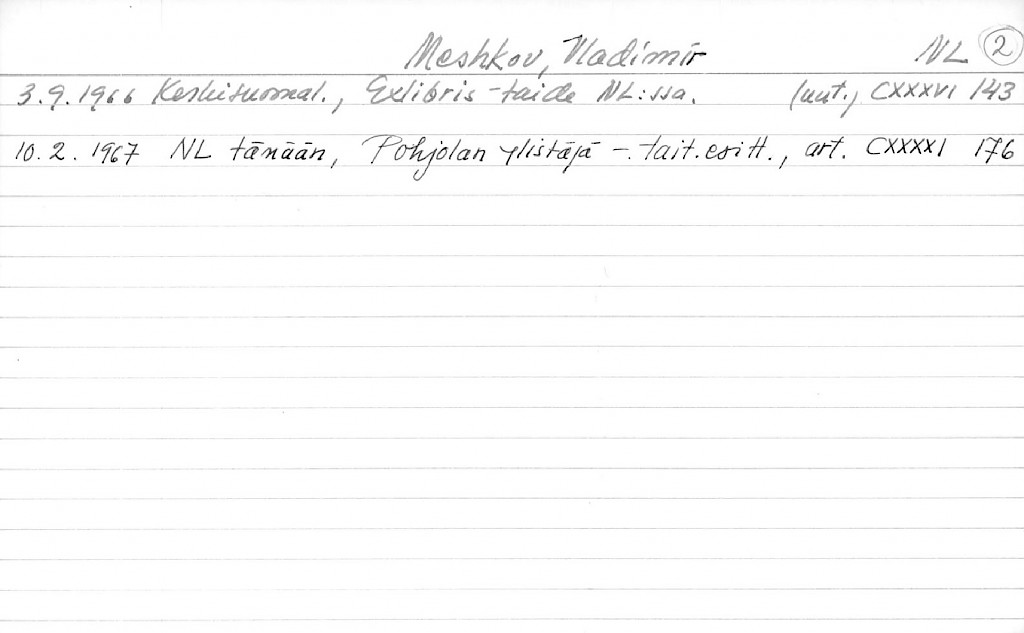 Meshkov, Vladimir NL 2
3.9.1966 Keskisuomal., Exlibris-taide NL:ssa. (uut.) CXXXVI 143
10.2.1967 NL tänään, Pohjolan ylistäjä -. tait.esitt., art. CXXXXI 176